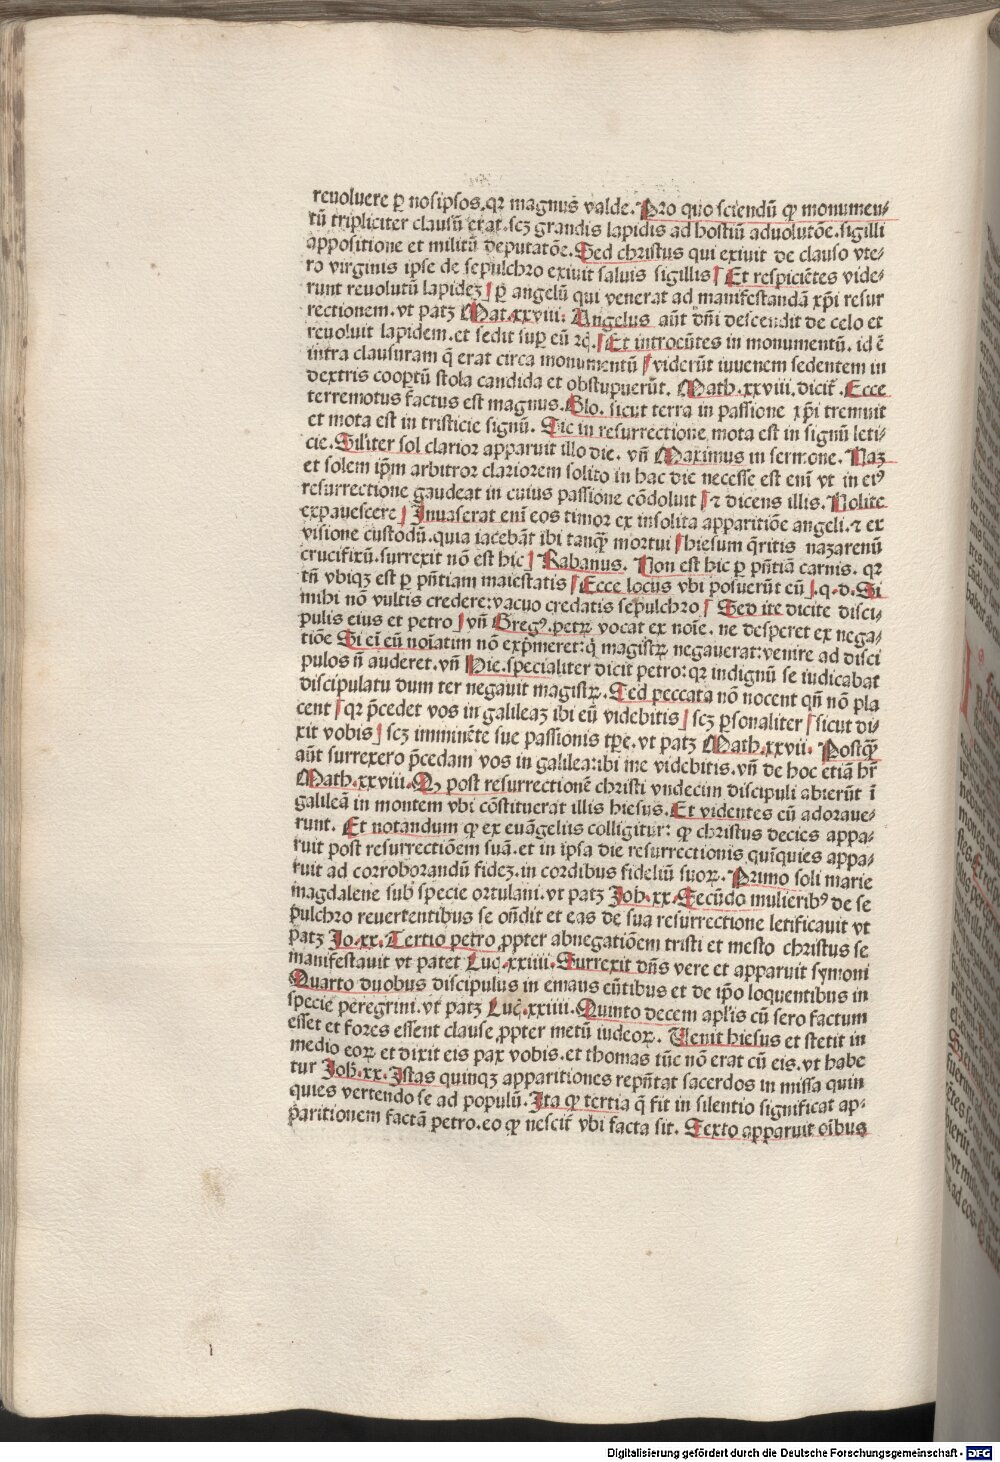 reuoluere ꝑ nosipsos. qꝛ magnus valde. Pro quo sciendū ꝙ monumen-
tū tripliciter clausū erat. scꝫ grandis lapidis ad hostiū aduolutōe. sigilli
appositione et militū deputatōe. Sed christus qui exiuit de clauso vte-
ro virginis ipse de sepulchro exiuit saluis sigillis Et respiciētes vide-
runt reuolutū lapidez ꝑ angelū qui venerat ad manifestandā xp̄i resur
rectionem. vt patꝫ Mat. xxviii: Angelus aūt dn̄i descendit de celo et
reuoluit lapidem. et sedit suꝑ eū ꝛc̄. Et introeūtes in monumentū. id ē
intra clausuram q̄ erat circa monumentū viderūt iuuenem sedentem in
dextris cooptū stola candida et obstupuerūt. Math. xxviii. dicit̄. Ecce
terremotus factus est magnus. Glo. sicut terra in passione xp̄i tremuit
et mota est in tristicie signū. Sic in resurrectione mota est in signū leti-
cie. Sil̄iter sol clarior apparuit illo die. vn̄ Maximus in sermone. Naꝫ
et solem ip̄m arbitror clariorem solito in hac die necesse est eni vt in ei⁹
resurrectione gaudeat in cuius passione cōdoluit ⁊ dicens illis. Nolite
expauescere Inuaserat eni eos timor ex insolita apparitiōe angeli. ⁊ ex
visione custodū. quia iacebāt ibi tanqꝫ mortui hiesum q̄ritis nazarenū
crucifixū. surrexit nō est hic Rabanus. Non est hic ꝑ pn̄tiā carnis. qꝛ
tn̄ vbiqꝫ est ꝑ pn̄tiam maiestatis Ecce locus vbi posuerūt eū .q. d. Si
mihi nō vultis credere: vacuo credatis sepulchro Sed ite dicite disci-
pulis eius et petro vn̄ Greg⁹. petrꝫ vocat ex noīe. ne desperet ex nega-
tiōe Si ei eū noīatim nō exp̄meret: q̄ magistrꝫ negauerat: venire ad disci
pulos n̄ auderet. vn̄ Hie. specialiter dicit petro: qꝛ indignū se iudicabat
discipulatu dum ter negauit magistrꝫ. Sed peccata nō nocent qn̄ nō pla
cent qꝛ p̄cedet vos in galileaꝫ ibi eū videbitis scꝫ ꝑsonaliter sicut di-
xit vobis scꝫ imminēte sue passionis tp̄e. vt patꝫ Math. xxvii. Postqꝫ
aūt surrexero p̄cedam vos in galilea: ibi me videbitis. vn̄ de hoc etiā hr̄
Math. xxviii. Q post resurrectionē christi vndecim discipuli abierūt ī
galileā in montem vbi cōstituerat illis hiesus. Et videntes eū adoraue-
runt. Et notandum ꝙ ex euāgeliis colligitur: ꝙ christus decies appa-
ruit post resurrectiōem suā. et in ipsa die resurrectionis quīquies appa-
ruit ad corroborandū fideꝫ. in cordibus fideliū suoꝝ. Primo soli marie
magdalene sub specie ortulani. vt patꝫ Joh. xx. Secūdo mulierib⁹ de se
pulchro reuertentibus se on̄dit et eas de sua resurrectione letificauit vt
patꝫ Jo. xx. Tertio petro ꝓpter abnegatiōem tristi et mesto christus se
manifestauit vt patet Luc. xxiiii. Surrexit dn̄s vere et apparuit symoni
Quarto duobus discipulus in emaus eūtibus et de ip̄o loquentibus in
specie peregrini. vt patꝫ Luc̄. xxiiii. Quinto decem aplis cū sero factum
esset et fores essent clause ꝓpter metū iudeoꝝ. Venit hiesus et stetit in
medio eoꝝ et dixit eis pax vobis. et thomas tūc nō erat cū eis. vt habe
tur Joh. xx. Istas quinqꝫ apparitiones repn̄tat sacerdos in missa quin
quies vertendo se ad populū. Ita ꝙ tertia q̄ fit in silentio significat ap-
paritionem factā petro. eo ꝙ nescit̄ vbi facta sit. Sexto apparuit oībus
Digitalisierung gefördert durch die Deutsche Forschungsgemeinschaft - DFG